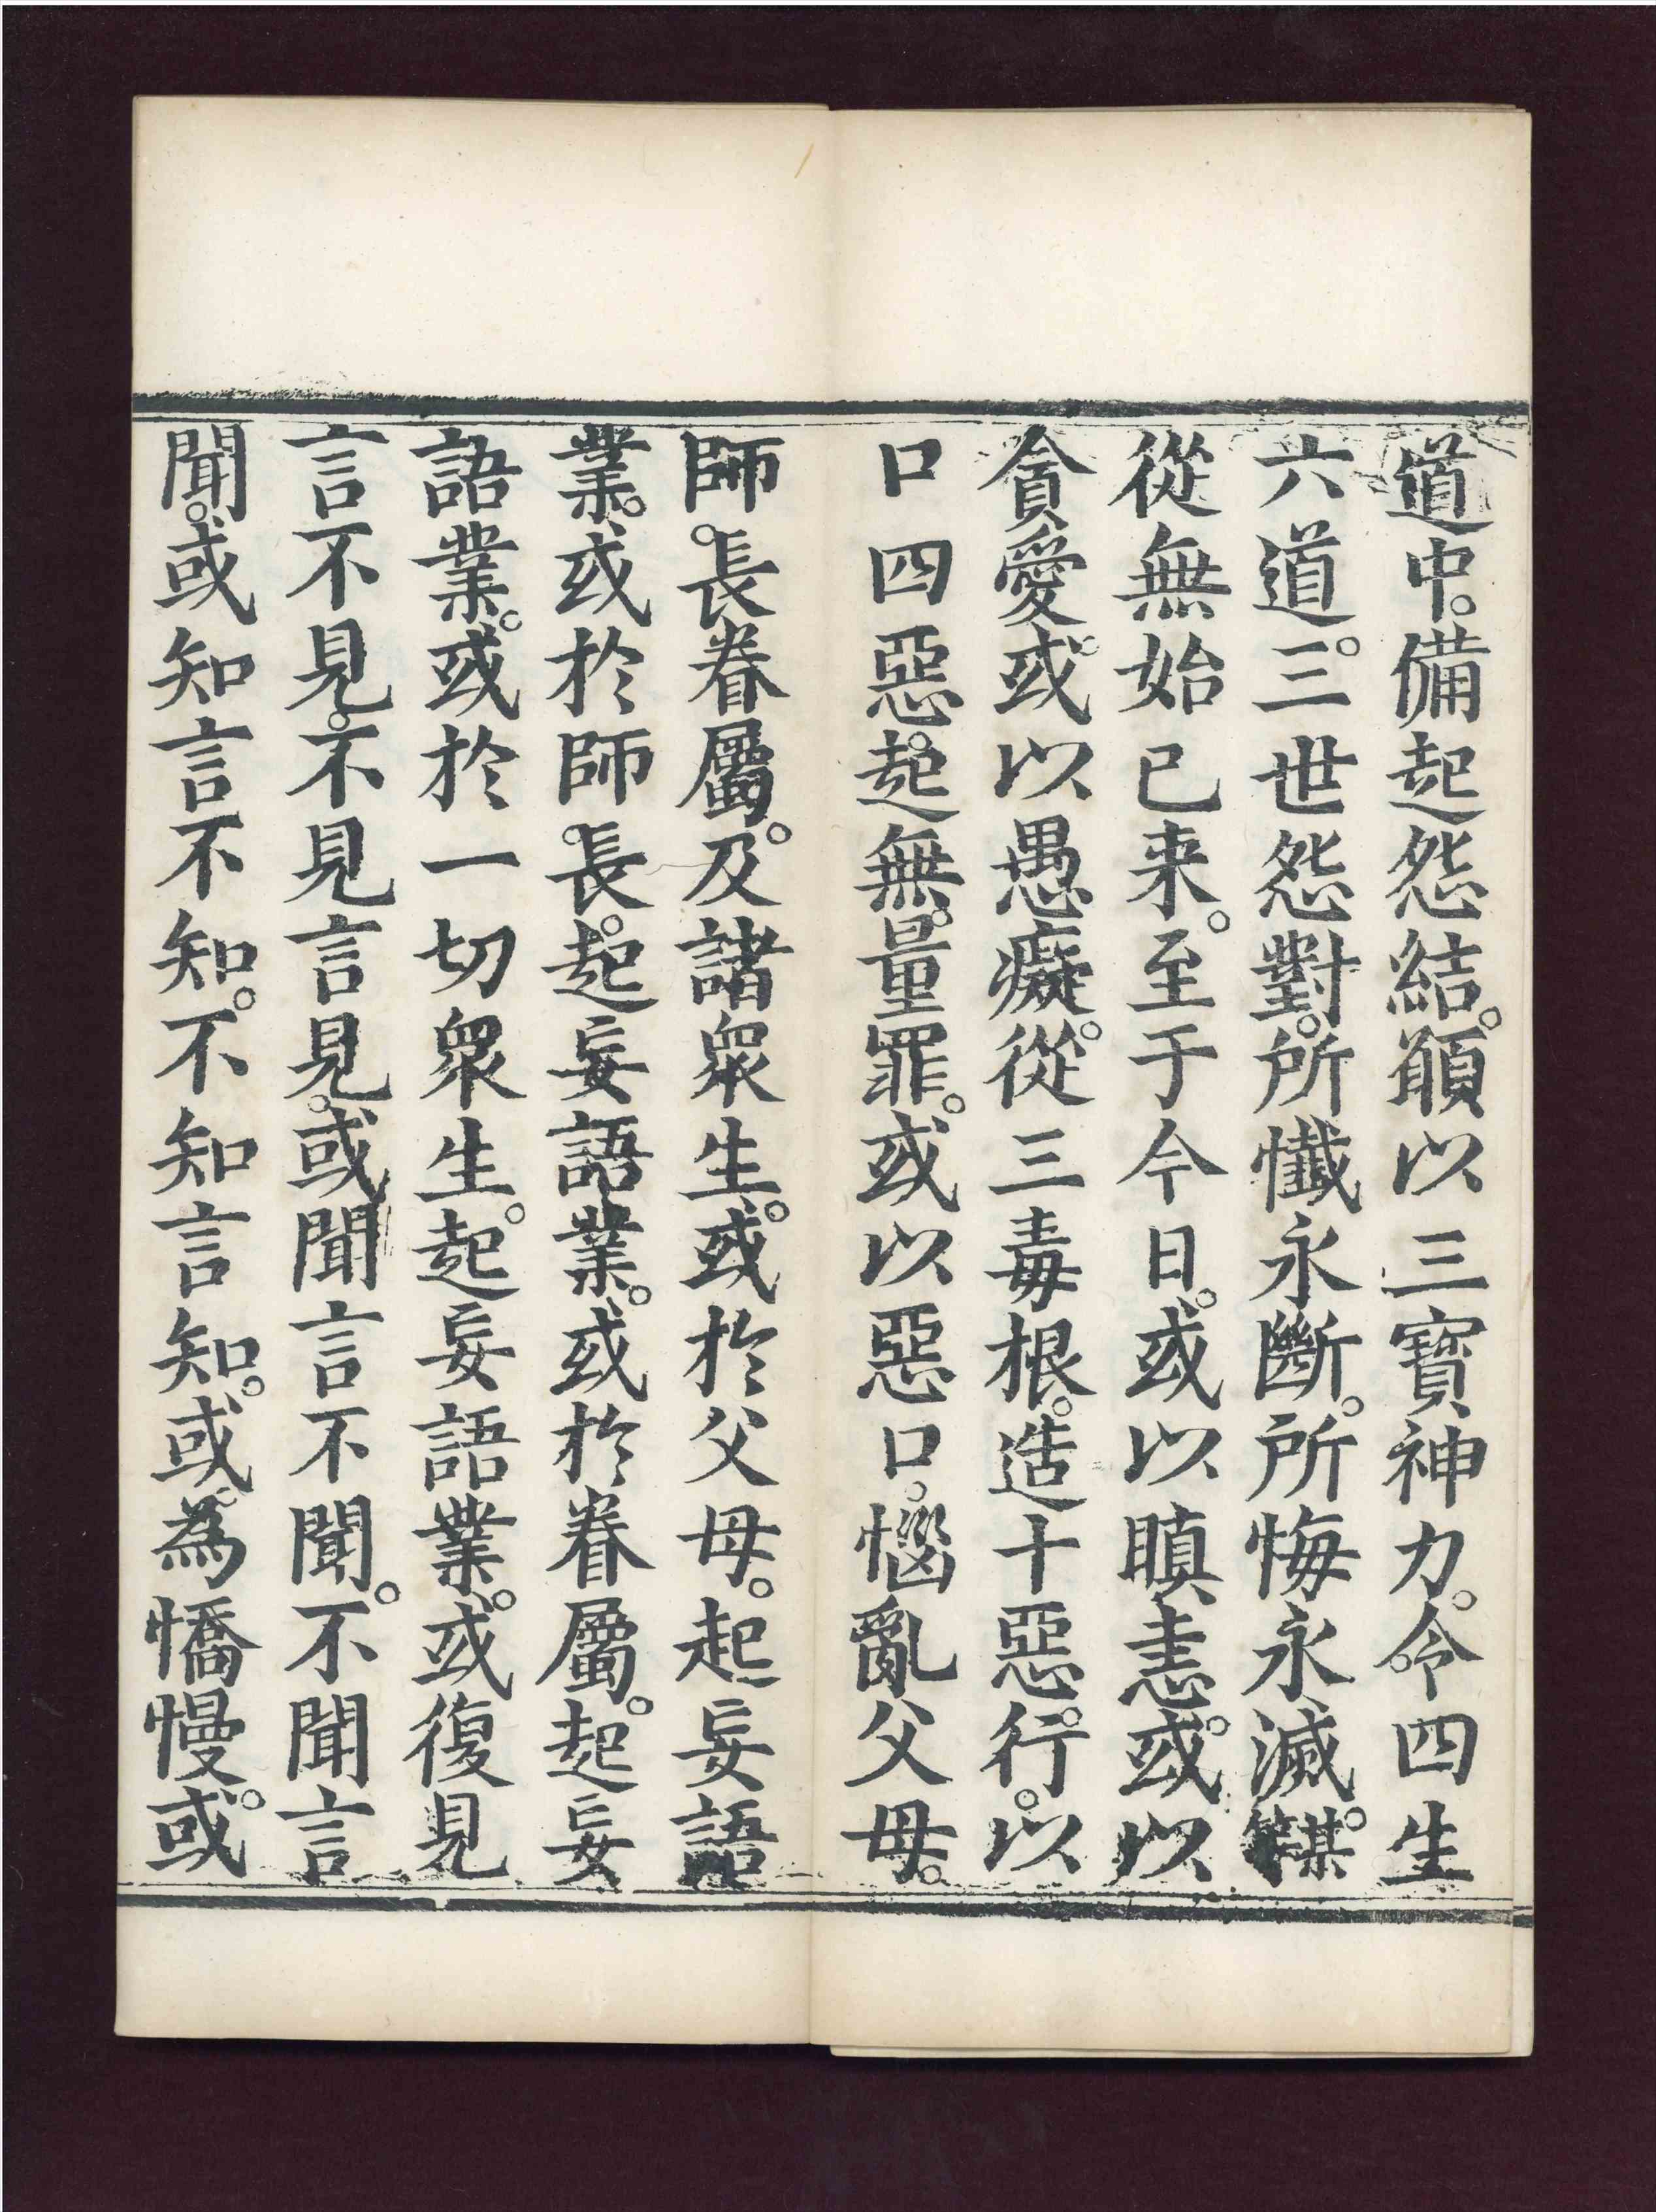 道中。備起怨結。願以三寶神力。令四生
六道。三世怨對。所懺永斷。所悔永滅。某
從無始已来。至于今日。或以瞋恚。或以
貪愛。或以愚癡。從三毒根。造十惡行。以
口四惡。起無量罪。或以惡口。惱亂父母。
師長。眷屬。及諸衆生。或於父母。起妄語
業。或於師長。起妄語業。或於眷屬。起妄
語業。或於一切衆生。起妄語業。或復見
言不見。不見言見。或聞言不聞。不聞言
聞。或知言不知。不知言知。或為憍慢。或